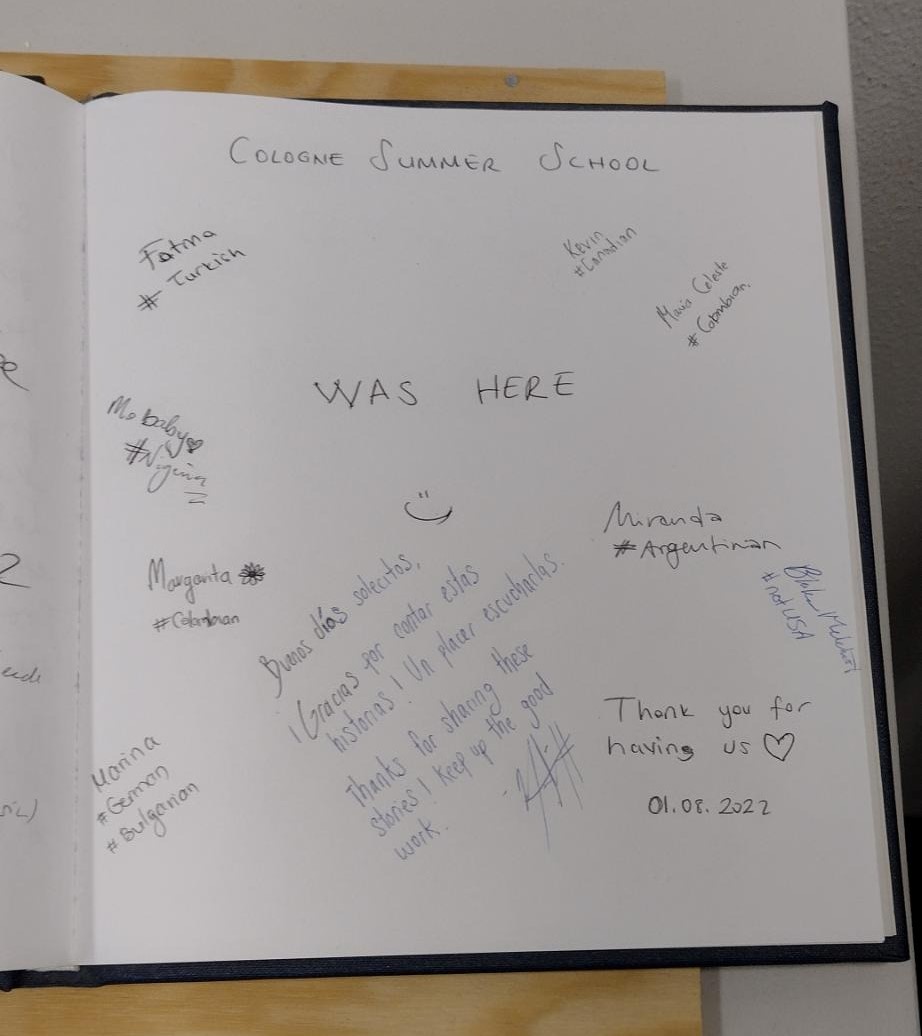 COLOGNE SUMMER SCHOOL
Fatma
# Turkish
Kevin
#Canadian
Maria Celeste
#Colombian.
WAS HERE
Mo baby♡
Miranda
#Argentinian
Margarita
#Colombian
Blake
#not USA
Buenos días solecitos,
¡Gracias por contar estas
historias! Un placer escucharlas.
Thanks for sharing these
stories! Keep up the good
work.
Marina
#German
#Bulgarian
Thank you for
having us ♡
01.08.2022